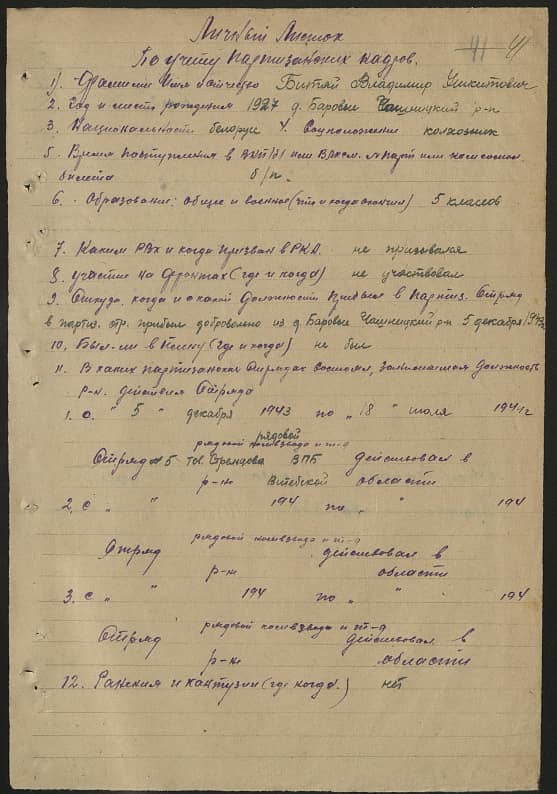 41 41
Личный Листок
По учету партизанских кадров.
1). Фамилия Имя отчество Битяй Владимир Никитович
2. Год и место рождения 1927 д. Баровые Чашницкий р-н
3. Национальность белорус 4. Соцположение колхозник
5. Время поступления в ВКП/б/ или ВЛКСМ. № парт или комсомол.
билета б/п.
6. Образование: общие и военное (что и когда окончил) 5 классов
7. Каким РВК и когда призван в РКА. не призывался
8. Участие на фронтах (где и когда) не участвовал
9. Откуда, когда и с какой должности прибыл в партиз. Отряд
в партиз. отр. прибыл добровольно из д. Баровые Чашницкий р-н 5 декабря 1943г
10. Был-ли в плену (где и когда) не был
11. В каких партизанских отрядах состоял, занимаемая должность
р-н. действия Отряда
1. С. " 5 " декабря 1943 по " 18 " июля 1944г
рядовой
рядовой комвзвода и т-д
Отряд № 5 тов. ВПБ действовал в
р-не Витебской области
2. С " " 194 по " " 194
рядовой комвзвода и т-д
Отряд действовал в
р-не области
3. С " 194 по " " 194
рядовой комвзвода и т-д
Отряд действовал в
р-не области
12. Ранения и контузии (где когда.) нет